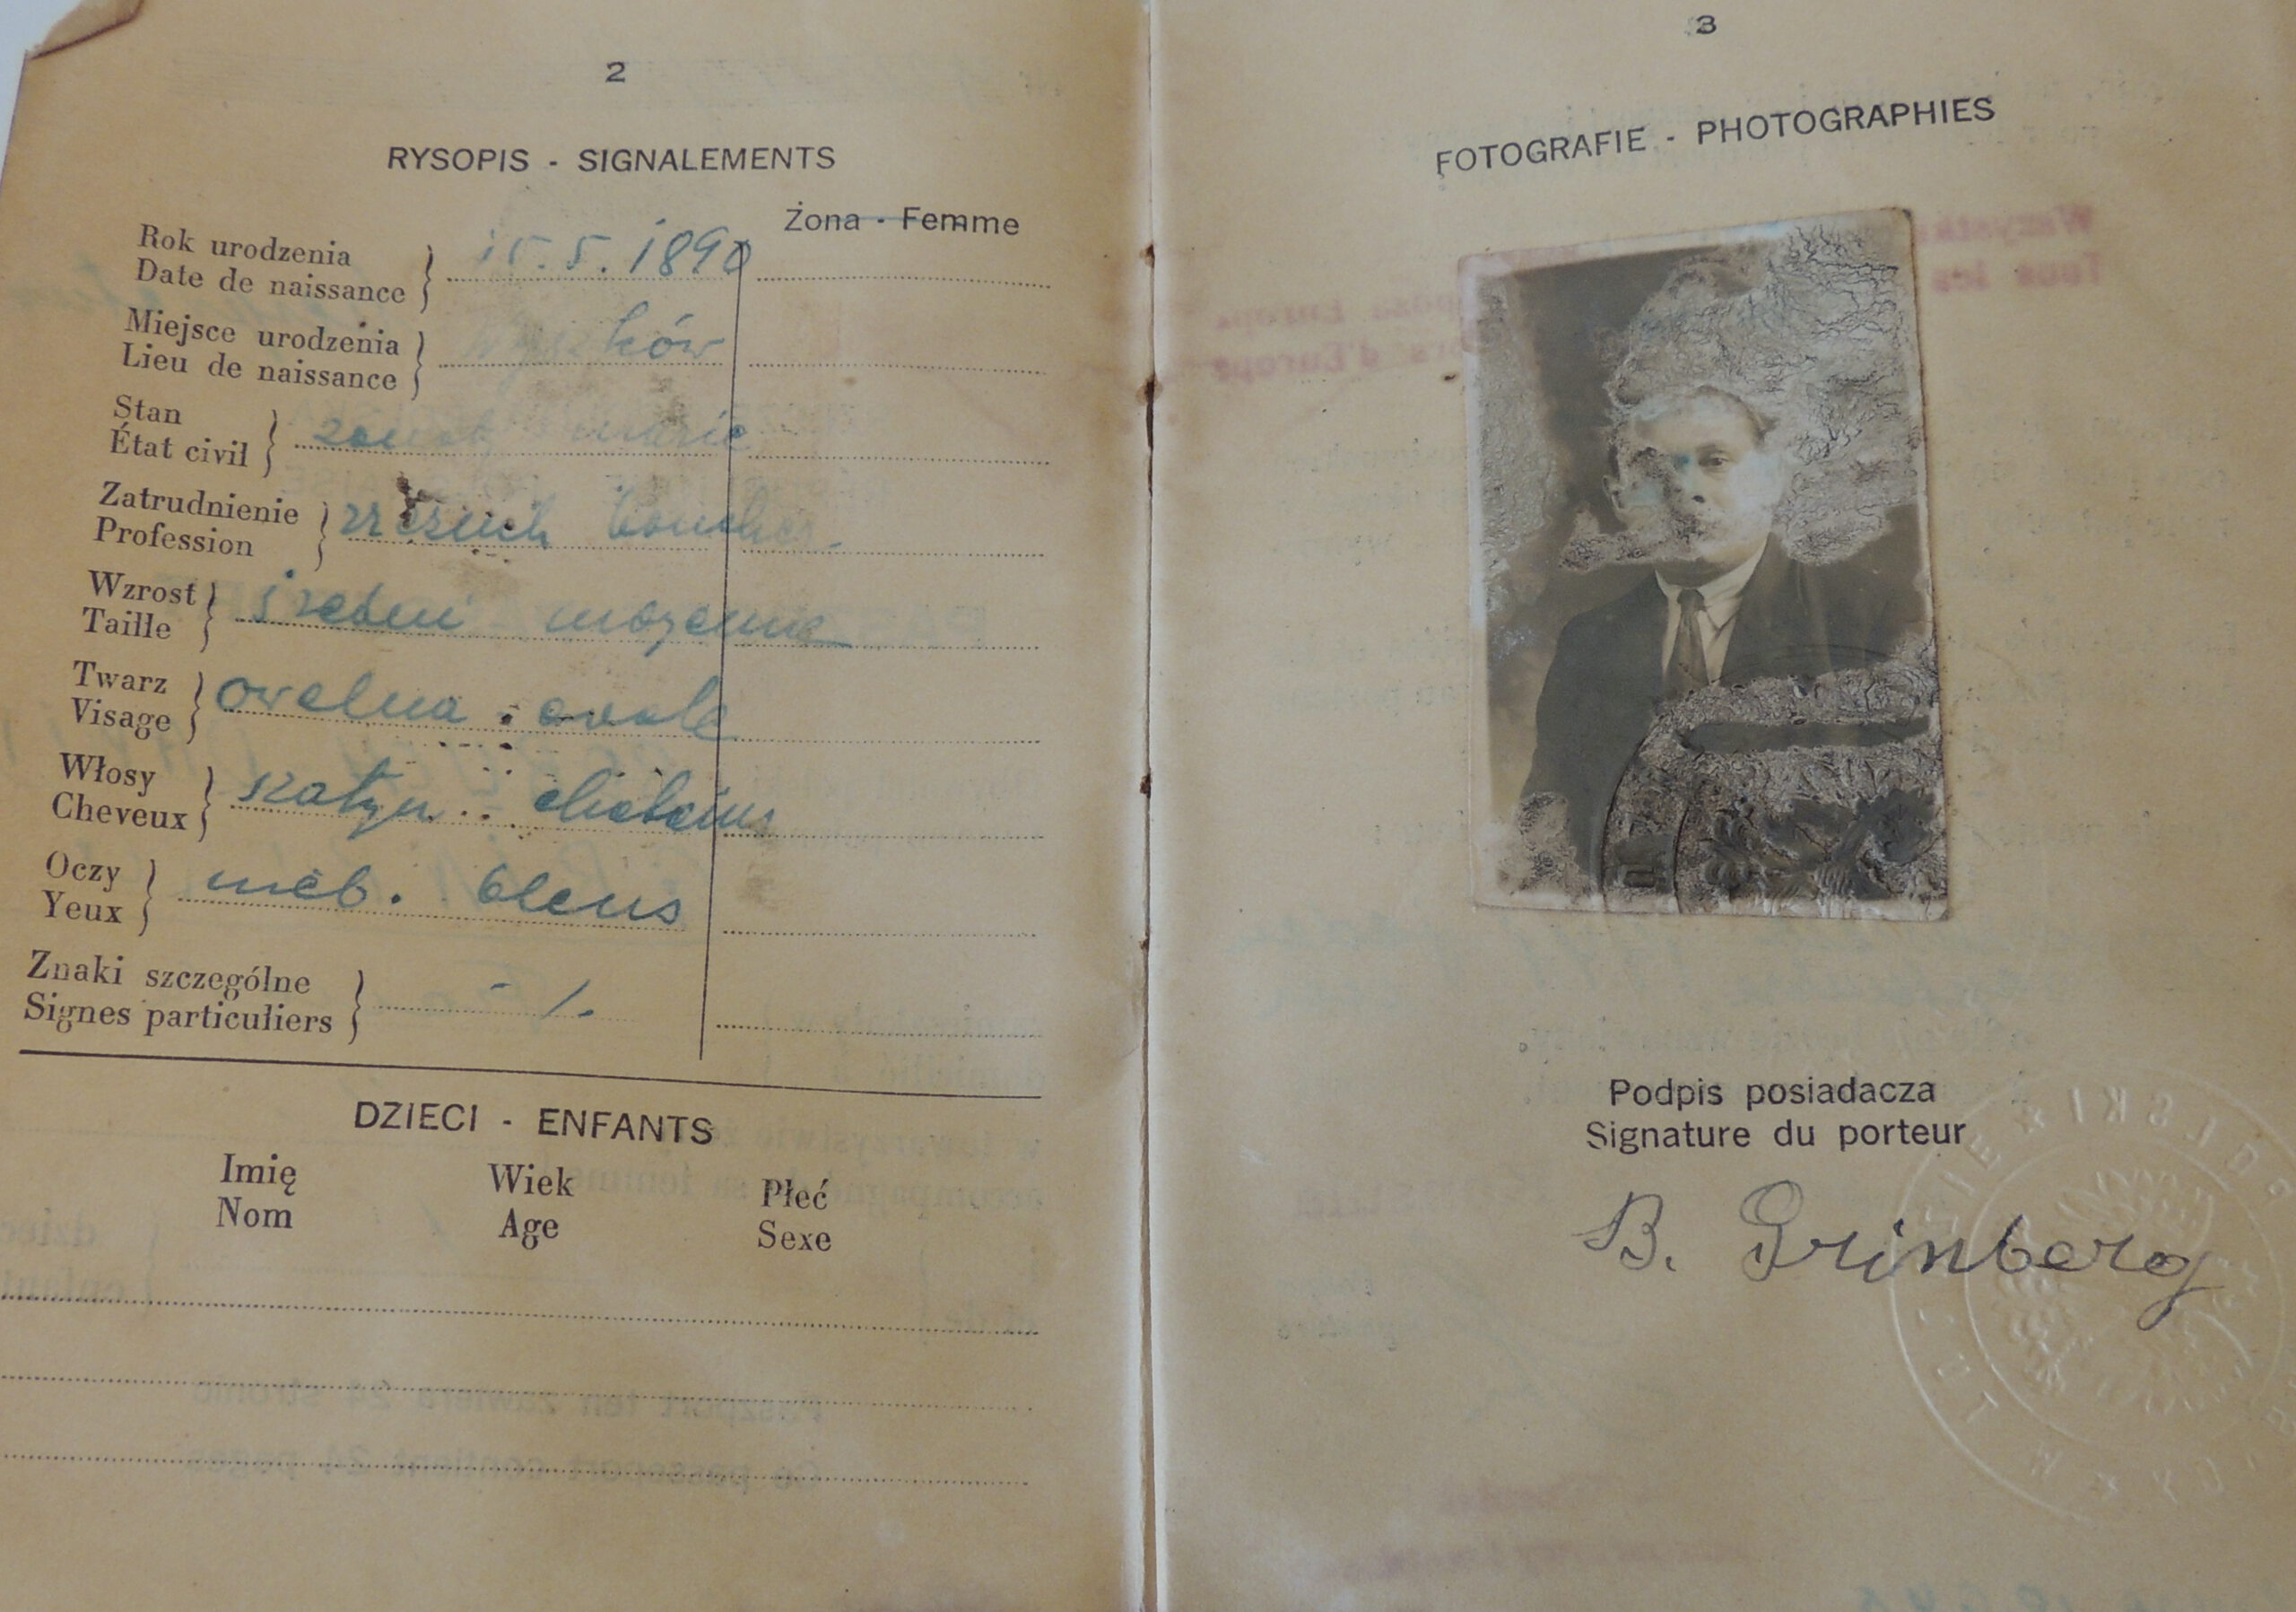 2
RYSOPIS - SIGNALEMENTS
Żona - Femme
Rok urodzenia
Date de naissance
15.5.1890
Miejsce urodzenia
Lieu de naissance
Stan
État civil
Zatrudnienie
Profession
rzeźnik boucher
Wzrost
Taille
średni moyenne
Twarz
Visage
owalna ovale
Włosy
Cheveux
szatyn. châtains
Oczy
Yeux
nieb. bleus
Znaki szczególne
Signes particuliers
DZIECI - ENFANTS
Imię Wiek Płeć
Nom Age Sexe
3
FOTOGRAFIE - PHOTOGRAPHIES
Podpis posiadacza
Signature du porteur
B. Grinberg